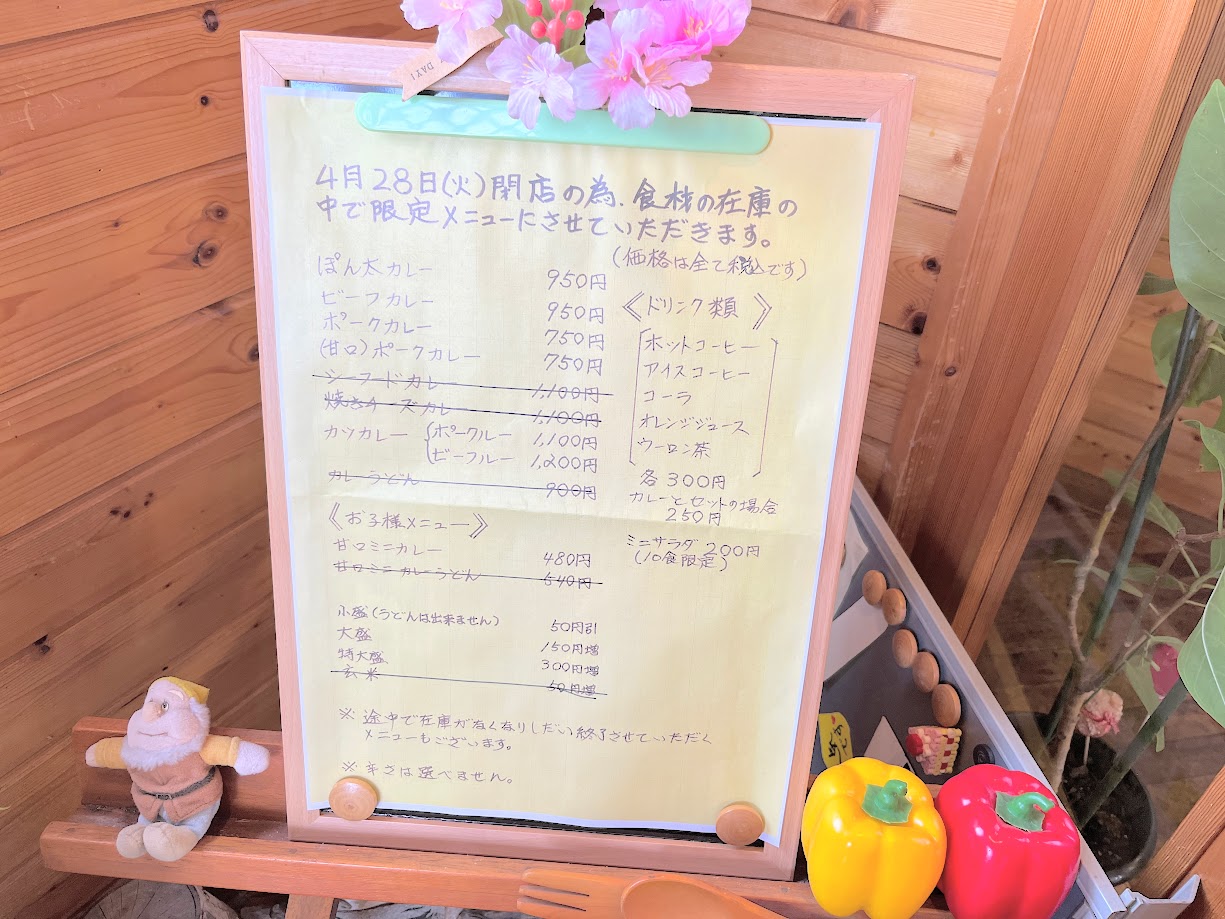 DAYI
4月28日(火)閉店の為、食材の在庫の
中で限定メニューにさせていただきます。
(価格は全て税込です)
ぽん太カレー 950円
ビーフカレー 950円
ポークカレー 750円
(甘口)ポークカレー 750円
シーフードカレー 1,100円
焼きチーズカレー 1,100円
カツカレー ポークルー 1,100円
ビーフルー 1,200円
カレーうどん 900円
《お子様メニュー》
甘口ミニカレー 480円
甘口ミニカレーうどん 540円
小盛(うどんは出来ません) 50円引
大盛 150円増
特大盛 300円増
玄米 50円増
※途中で在庫がなくなりしだい終了させていただく
メニューもございます。
※辛さは選べません。
《ドリンク類》
ホットコーヒー
アイスコーヒー
コーラ
オレンジジュース
ウーロン茶
各300円
カレーとセットの場合
250円
ミニサラダ 200円
(10食限定)